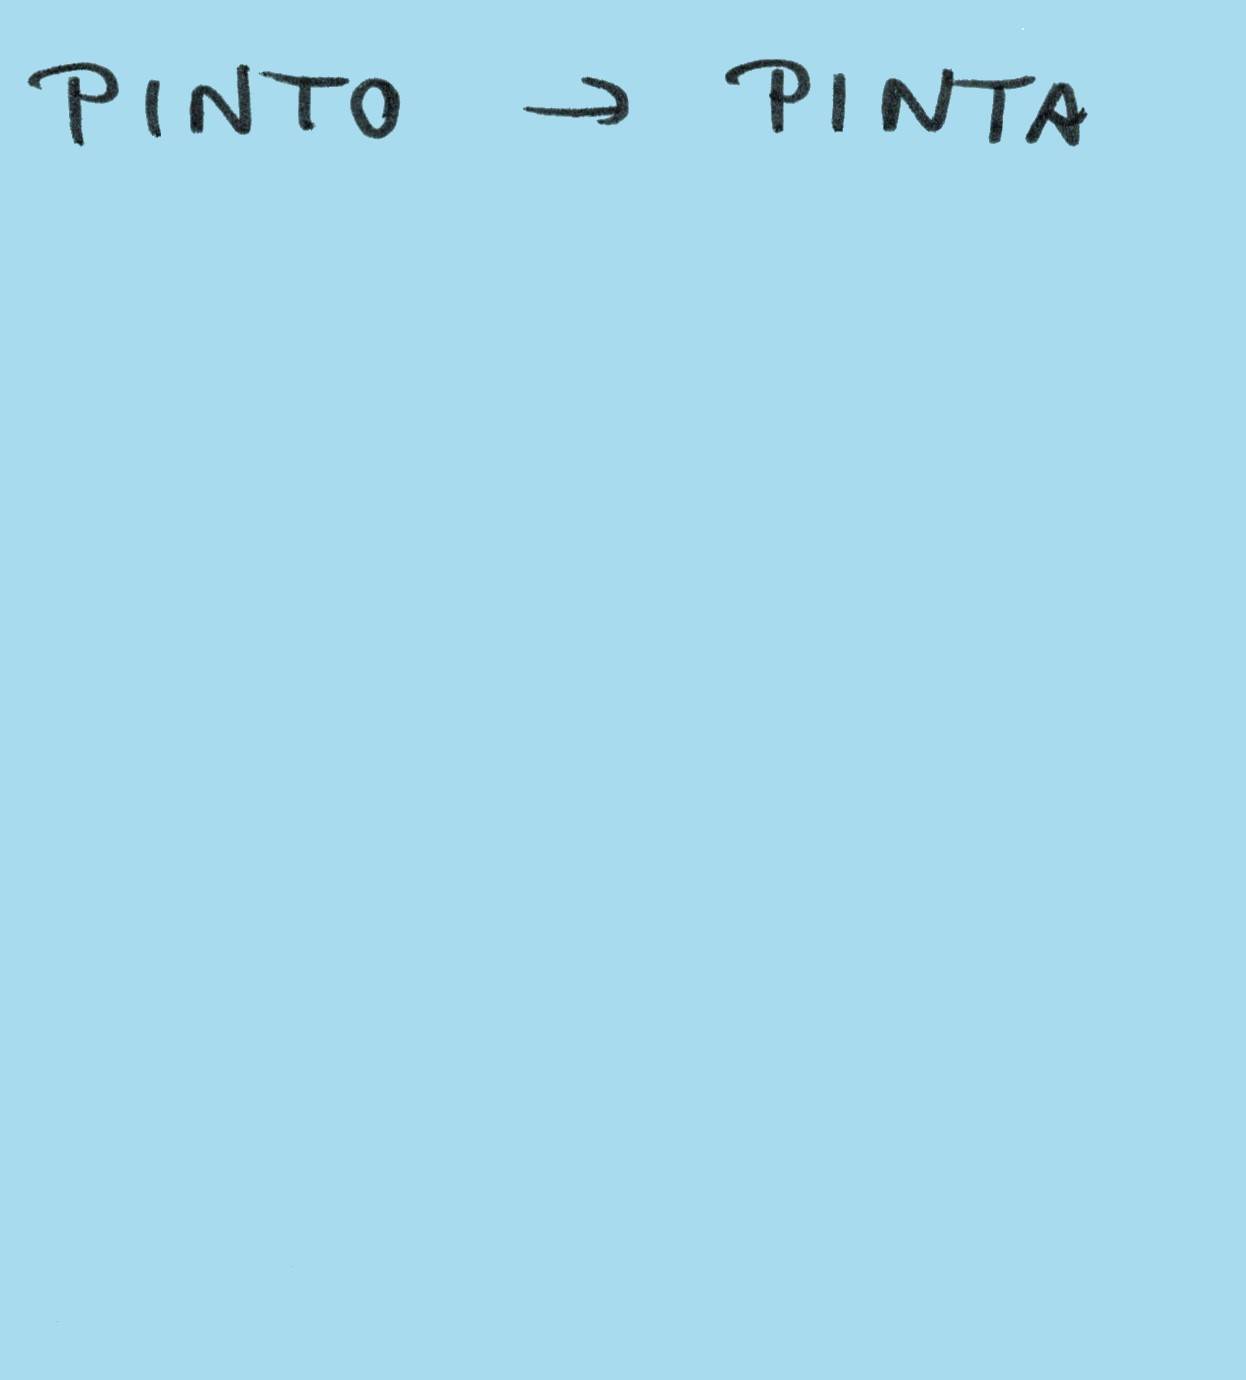 PINTO → PINTA